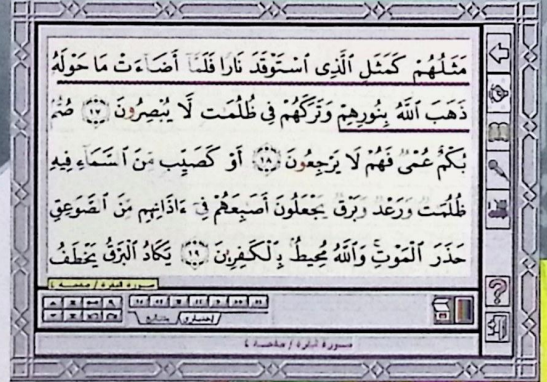 مَثَلُهُمْ كَمَثَلِ ٱلَّذِى ٱسْتَوْقَدَ نَارًا فَلَمَّآ أَضَآءَتْ مَا حَوْلَهُۥ
ذَهَبَ ٱللَّهُ بِنُورِهِمْ وَتَرَكَهُمْ فِى ظُلُمَٰتٍ لَّا يُبْصِرُونَ ۝١٧ صُمٌّۢ
بُكْمٌ عُمْىٌ فَهُمْ لَا يَرْجِعُونَ ۝١٨ أَوْ كَصَيِّبٍ مِّنَ ٱلسَّمَآءِ فِيهِ
ظُلُمَٰتٌ وَرَعْدٌ وَبَرْقٌ يَجْعَلُونَ أَصَٰبِعَهُمْ فِىٓ ءَاذَانِهِم مِّنَ ٱلصَّوَٰعِقِ
حَذَرَ ٱلْمَوْتِ وَٱللَّهُ مُحِيطٌۢ بِٱلْكَٰفِرِينَ ۝١٩ يَكَادُ ٱلْبَرْقُ يَخْطَفُ
سورة البقرة / صفحة ٤
سورة البقرة / صفحة ٤